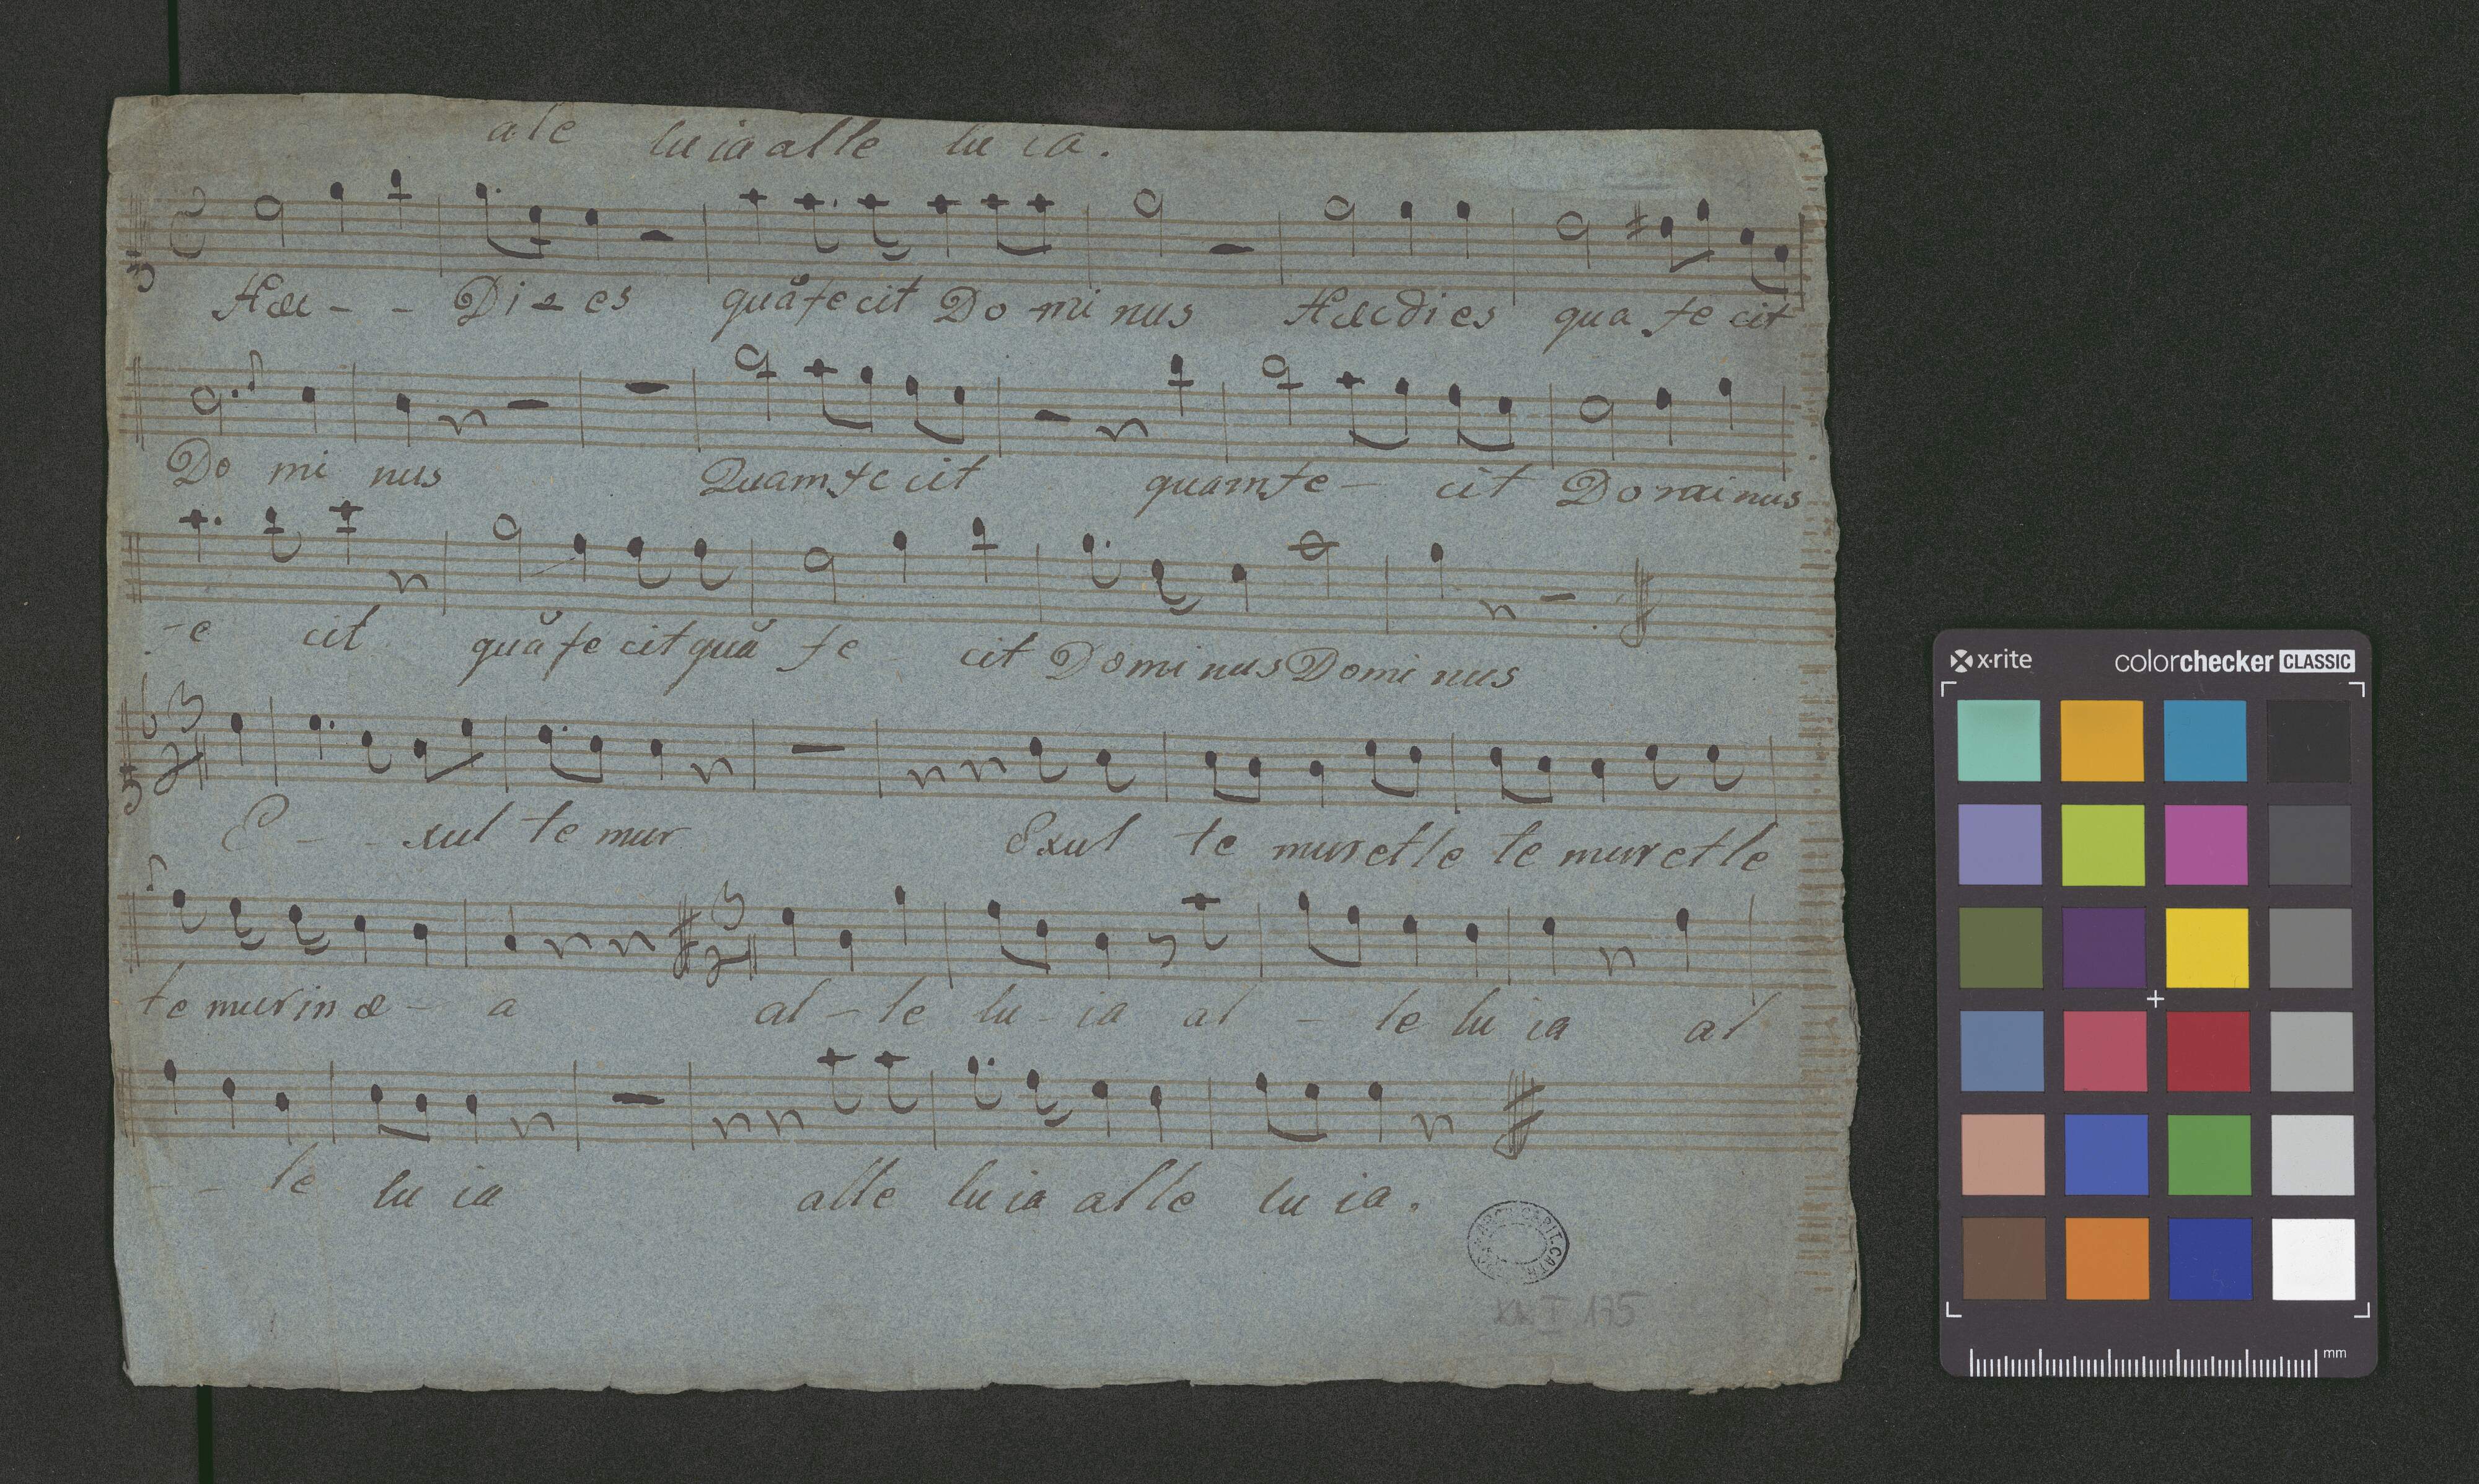 ale luia alle luia.
Hæc - - Di - es quã fecit Do - mi nus Hæc dies qua fe cit
Do mi nus Quam fe cit quam fe - cit Do mi nus
- e cit quã fe cit quã fe - cit Domi nus Domi nus
E - - xul te mur Exul te mur et le te mur et le
te mur in e - a al - le lu - ia al - le lu ia al
- - le lu ia alle lu ia alle lu ia.
CAPIT. CATH
XX I 175
x·rite colorchecker CLASSIC
mm